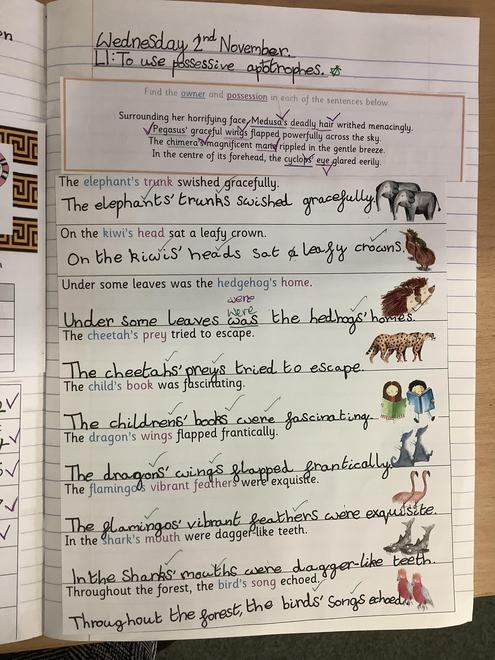 Wednesday 2nd November.
LI: To use possessive apostrophes.
Find the owner and possession in each of the sentences below.
Surrounding her horrifying face, Medusa's deadly hair writhed menacingly.
Pegasus' graceful wings flapped powerfully across the sky.
The chimera's magnificent mane rippled in the gentle breeze.
In the centre of its forehead, the cyclops' eye glared eerily.
The elephant's trunk swished gracefully.
The elephants' trunks swished gracefully.
On the kiwi's head sat a leafy crown.
On the kiwis' heads sat leafy crowns.
Under some leaves was the hedgehog's home.
were
were
Under some leaves was the hedhogs' homes.
The cheetah's prey tried to escape.
The cheetahs' preys tried to escape.
The child's book was fascinating.
The childrens' books were fascinating.
The dragon's wings flapped frantically.
The dragons' wings flapped frantically.
The flamingo's vibrant feathers were exquisite.
The flamingos' vibrant feathers were exquisite.
In the shark's mouth were dagger-like teeth.
In the sharks' mouths were dagger-like teeth.
Throughout the forest, the bird's song echoed.
Throughout the forest, the birds' songs echoed.